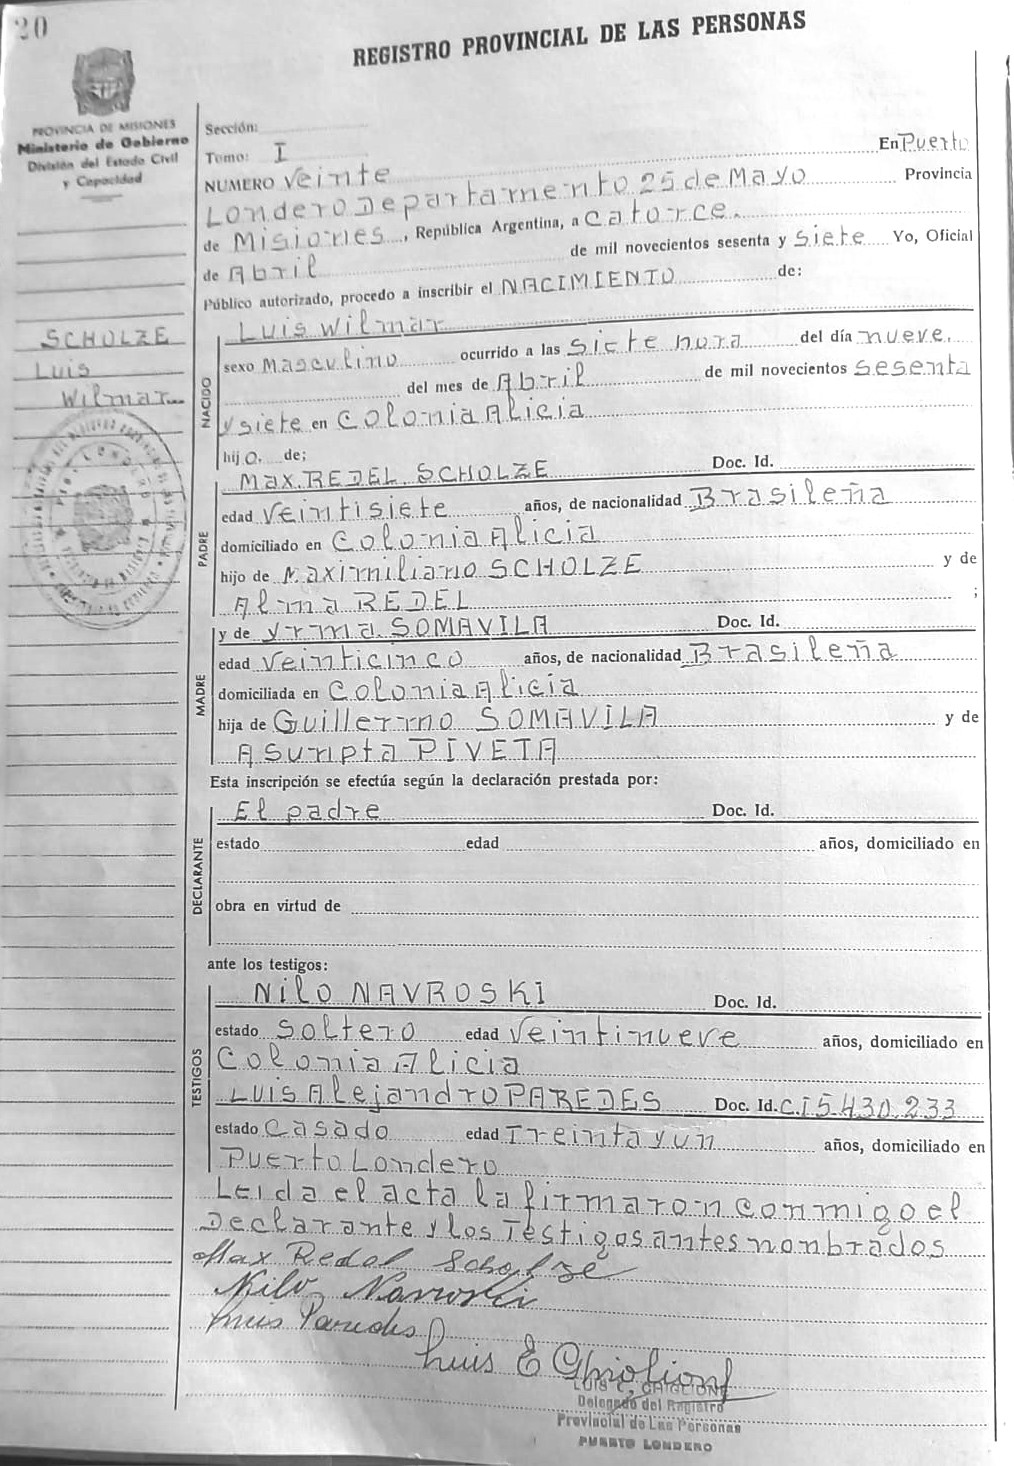 20
REGISTRO PROVINCIAL DE LAS PERSONAS
PROVINCIA DE MISIONES
Ministerio de Gobierno
División del Estado Civil
y Capacidad
Sección:
Tomo: I
NUMERO Veinte En Puerto
Londero Departamento 25 de Mayo Provincia
de Misiones, República Argentina, a catorce.
de Abril de mil novecientos sesenta y siete Yo, Oficial
Público autorizado, procedo a inscribir el NACIMIENTO de:
SCHOLZE
Luis
Wilmar
NACIDO
Luis Wilmar
sexo Masculino ocurrido a las siete hora del día nueve.
del mes de Abril de mil novecientos sesenta
y siete en Colonia Alicia
hijo. de;
PADRE
Max. REDEL SCHOLZE Doc. Id.
edad Veintisiete años, de nacionalidad Brasileña
domiciliado en Colonia Alicia
hijo de Maximiliano SCHOLZE y de
Alma REDEL ;
MADRE
y de Yrma SOMAVILA Doc. Id.
edad Veinticinco años, de nacionalidad Brasileña
domiciliada en Colonia Alicia
hija de Guillermo SOMAVILA y de
Asunpta PIVETA
Esta inscripción se efectúa según la declaración prestada por:
DECLARANTE
El padre Doc. Id.
estado edad años, domiciliado en
obra en virtud de
ante los testigos:
TESTIGOS
Nilo NAVROSKI Doc. Id.
estado Soltero edad Veintinueve años, domiciliado en
Colonia Alicia
Luis Alejandro PAREDES Doc. Id. C.I 5.430.233
estado Casado edad Treinta y un años, domiciliado en
Puerto Londero
Leida el acta la firmaron conmigo el
Declarante y los Testigos antes nonbrados
Max Redel Scholze
Nilo Navroski
Luis Paredes
Luis E Ghiglione
LUIS E. GHIGLIONE
Delegado del Registro
Provincial de Las Personas
PUERTO LONDERO